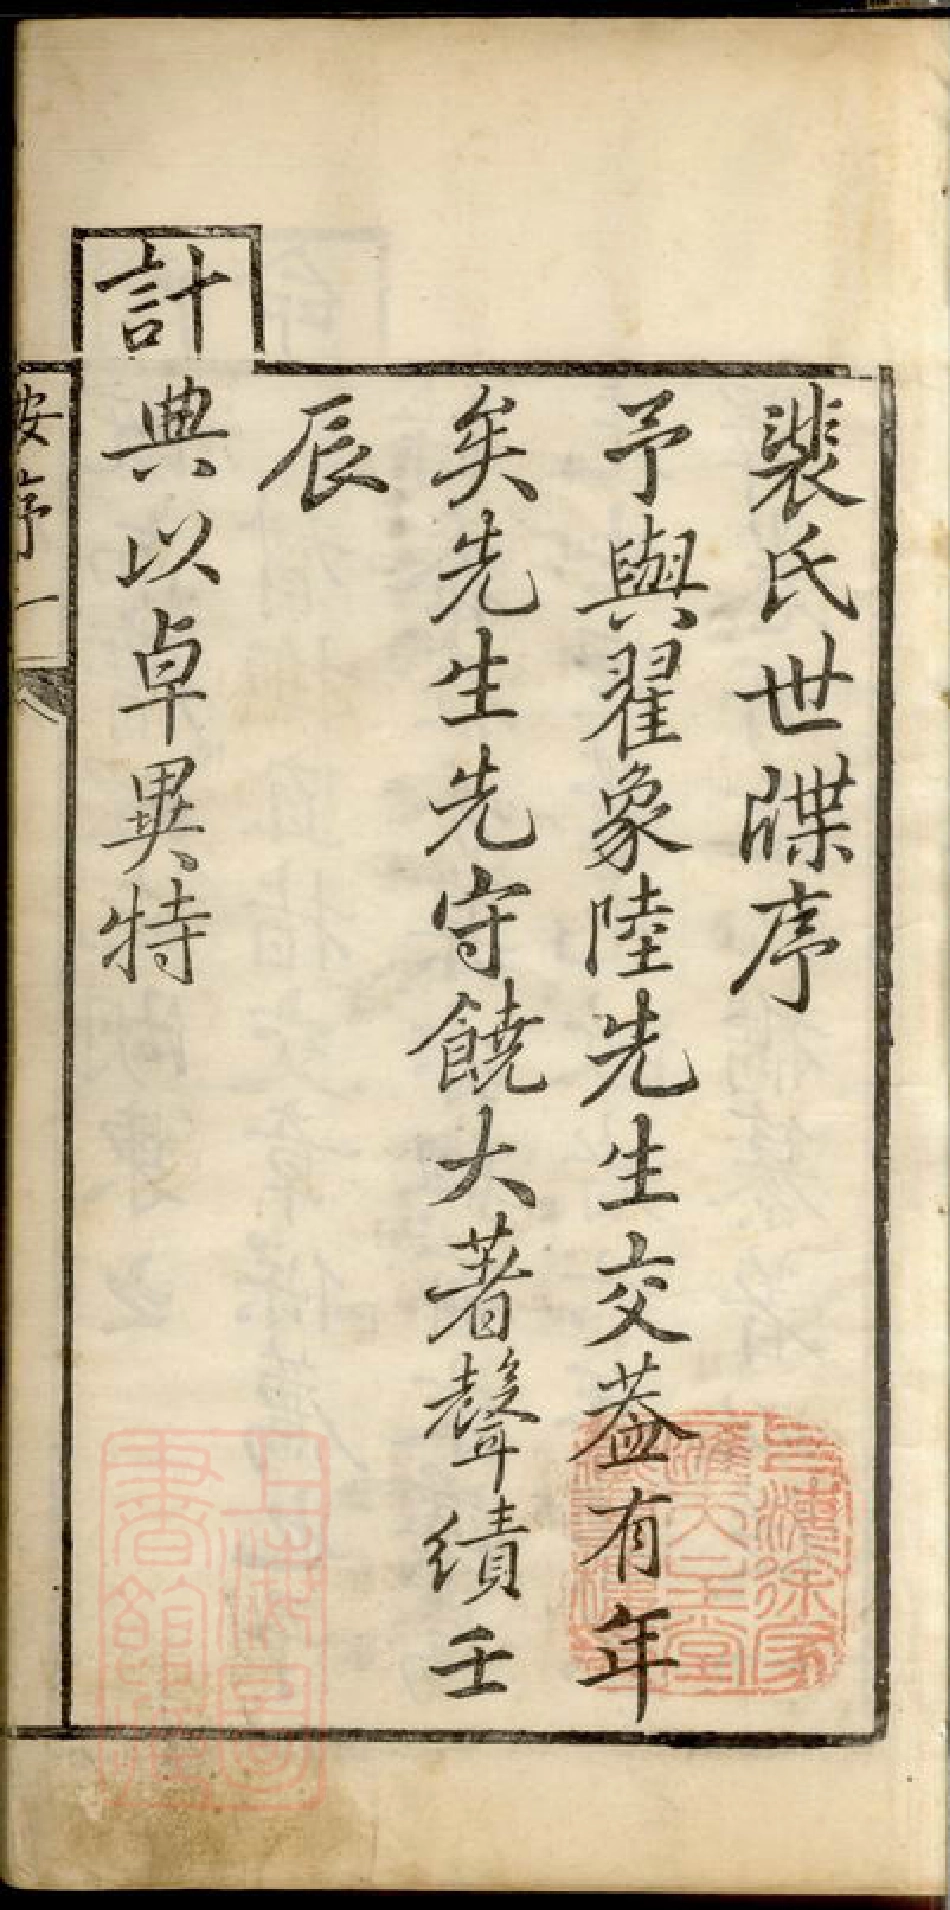 裴氏世牒序
予與翟象陸先生交葢有年
矣先生先守饒大著聲績壬
辰
計典以卓異特
序一
上海徐家
匯天主堂
藏書樓印
上海圖
書館藏